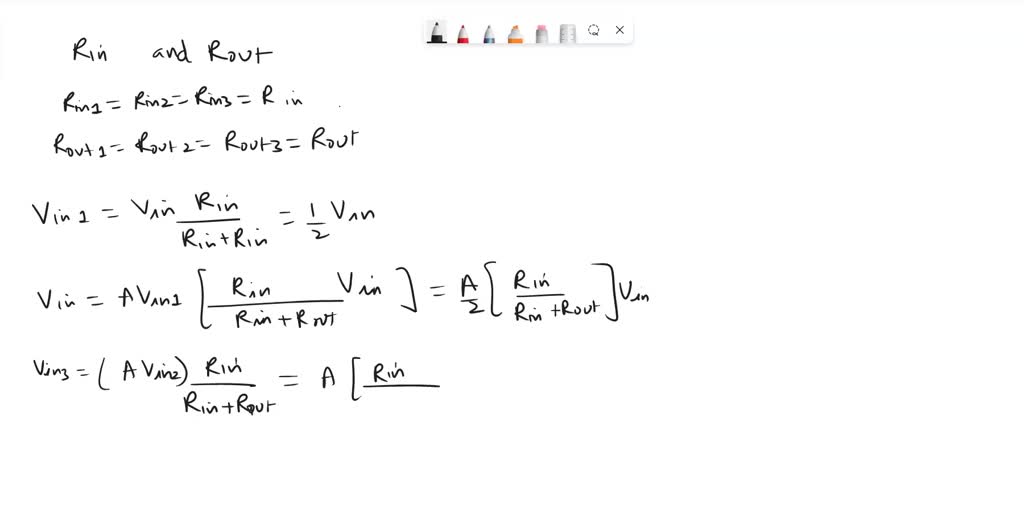 Rin and Rout
Rin1 = Rin2 = Rin3 = Rin
Rout1 = Rout2 = Rout3 = Rout
Vin1 = Vin Rin / Rin+Rin = 1/2 Vin
Vin = AVin1 [ Rin / Rin+Rout Vin ] = A/2 [ Rin / Rin+Rout ] Vin
Vin3 = ( A Vin2) Rin / Rin+Rout = A [ Rin